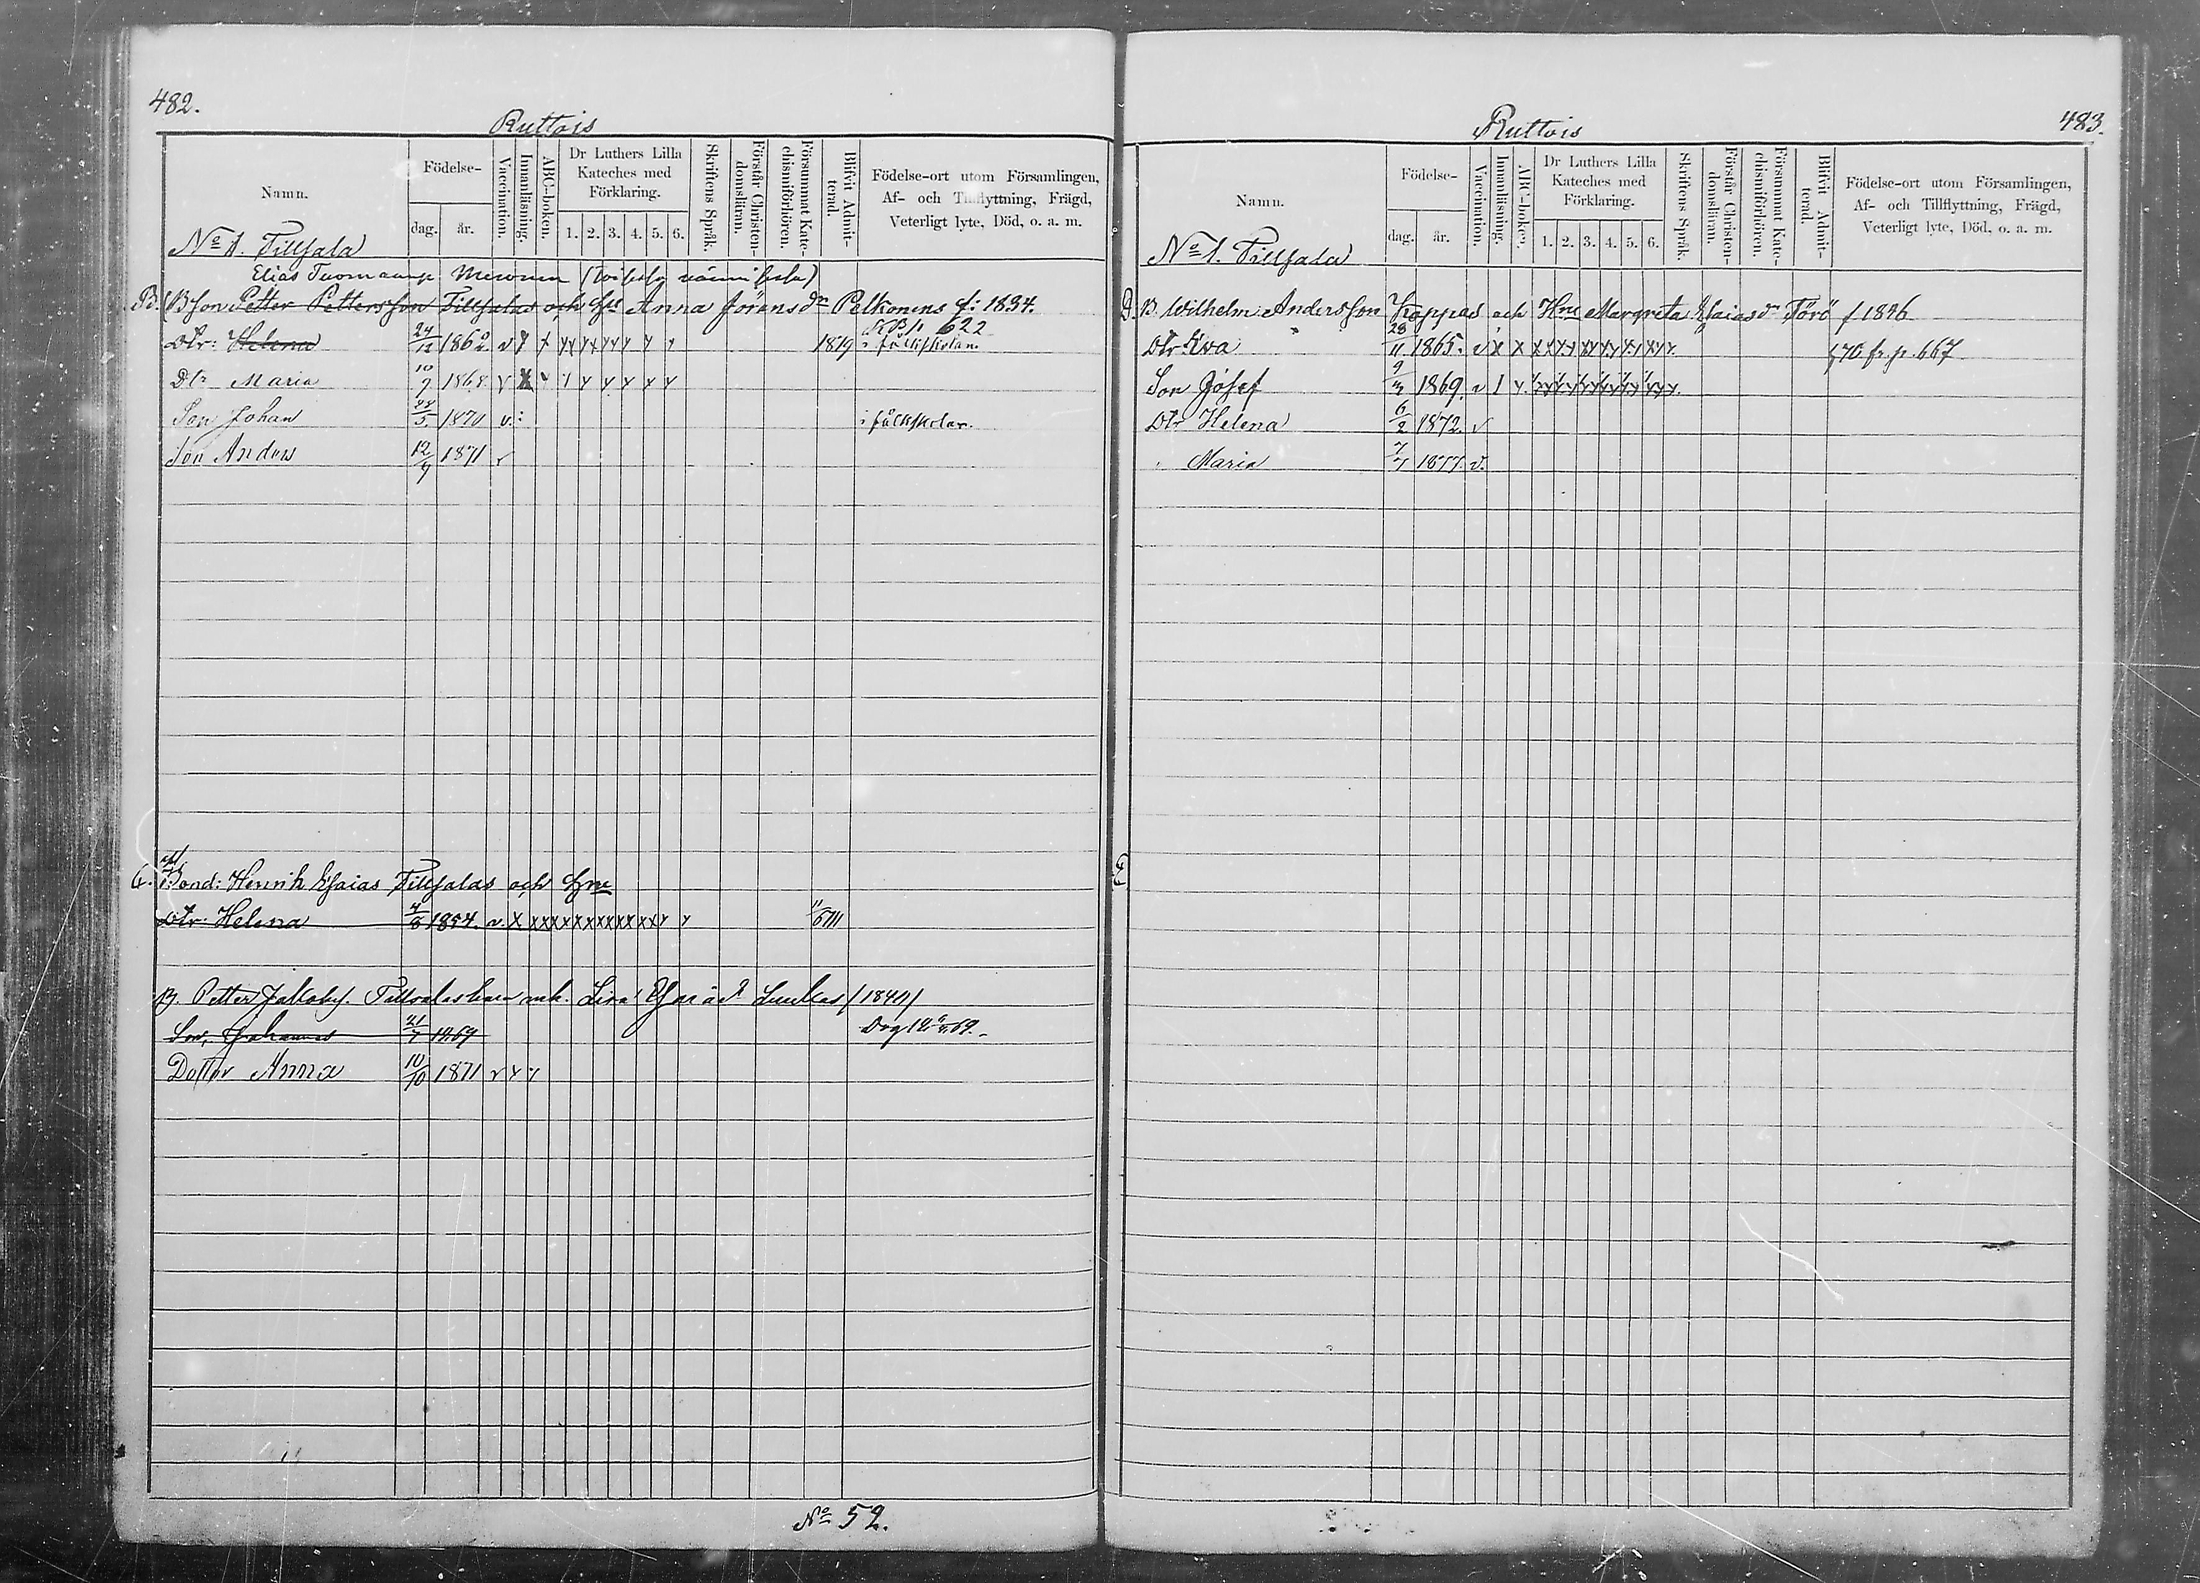 482.
Ruttois
Namn.
Födelse-
dag.
år.
Vaccination.
Innanläsning.
ABC-boken.
Dr Luthers Lilla
Kateches med
Förklaring.
1. 2. 3. 4. 5. 6.
Skriftens Språk.
Förstår Christen-
domsläran.
Försummat Kate-
chismiförhören.
Blifvit Admit-
terad.
Födelse-ort utom Församlingen,
Af- och Tillflyttning, Frägd,
Veterligt lyte, Död, o. a. m.
No 1. Tillsala
Elias
B. Bson Petter Pettersson Tillsalas och Anna Jöransdr Pelkonens f: 1834.
KB p 622
Dtr: Helena 24/12 1862 v 1879 i folkskolan
Dtr Maria 10/7 1868 v
Son Johan 24/5 1870 v. i folkskolan.
Son Anders 12/9 1871 v
C. Bond: Henrik Esaias Tillsalas och Hru
Dtr: Helena 4/8 1854. v.
B. Petter Jakobss. Lisa (1840)
Son, Johannes 21/7 1869
Dotter Anna 10/10 1871 v
No 52.
483.
Ruttois
Namn.
Födelse-
dag.
år.
Vaccination.
Innanläsning.
ABC-boken.
Dr Luthers Lilla
Kateches med
Förklaring.
1. 2. 3. 4. 5. 6.
Skriftens Språk.
Förstår Christen-
domsläran.
Försummat Kate-
chismiförhören.
Blifvit Admit-
terad.
Födelse-ort utom Församlingen,
Af- och Tillflyttning, Frägd,
Veterligt lyte, Död, o. a. m.
No 1. Tillsala
D. B. Wilhelm Andersson Kappas och Hru Margreta Esaiasdr Törö f 1846
Dtr Eva 28/11 1865. v 70 fr. p. 667
Son Josef 9/3 1869. v
Dtr Helena 6/2 1872. v
Maria 7/7 1877. v.